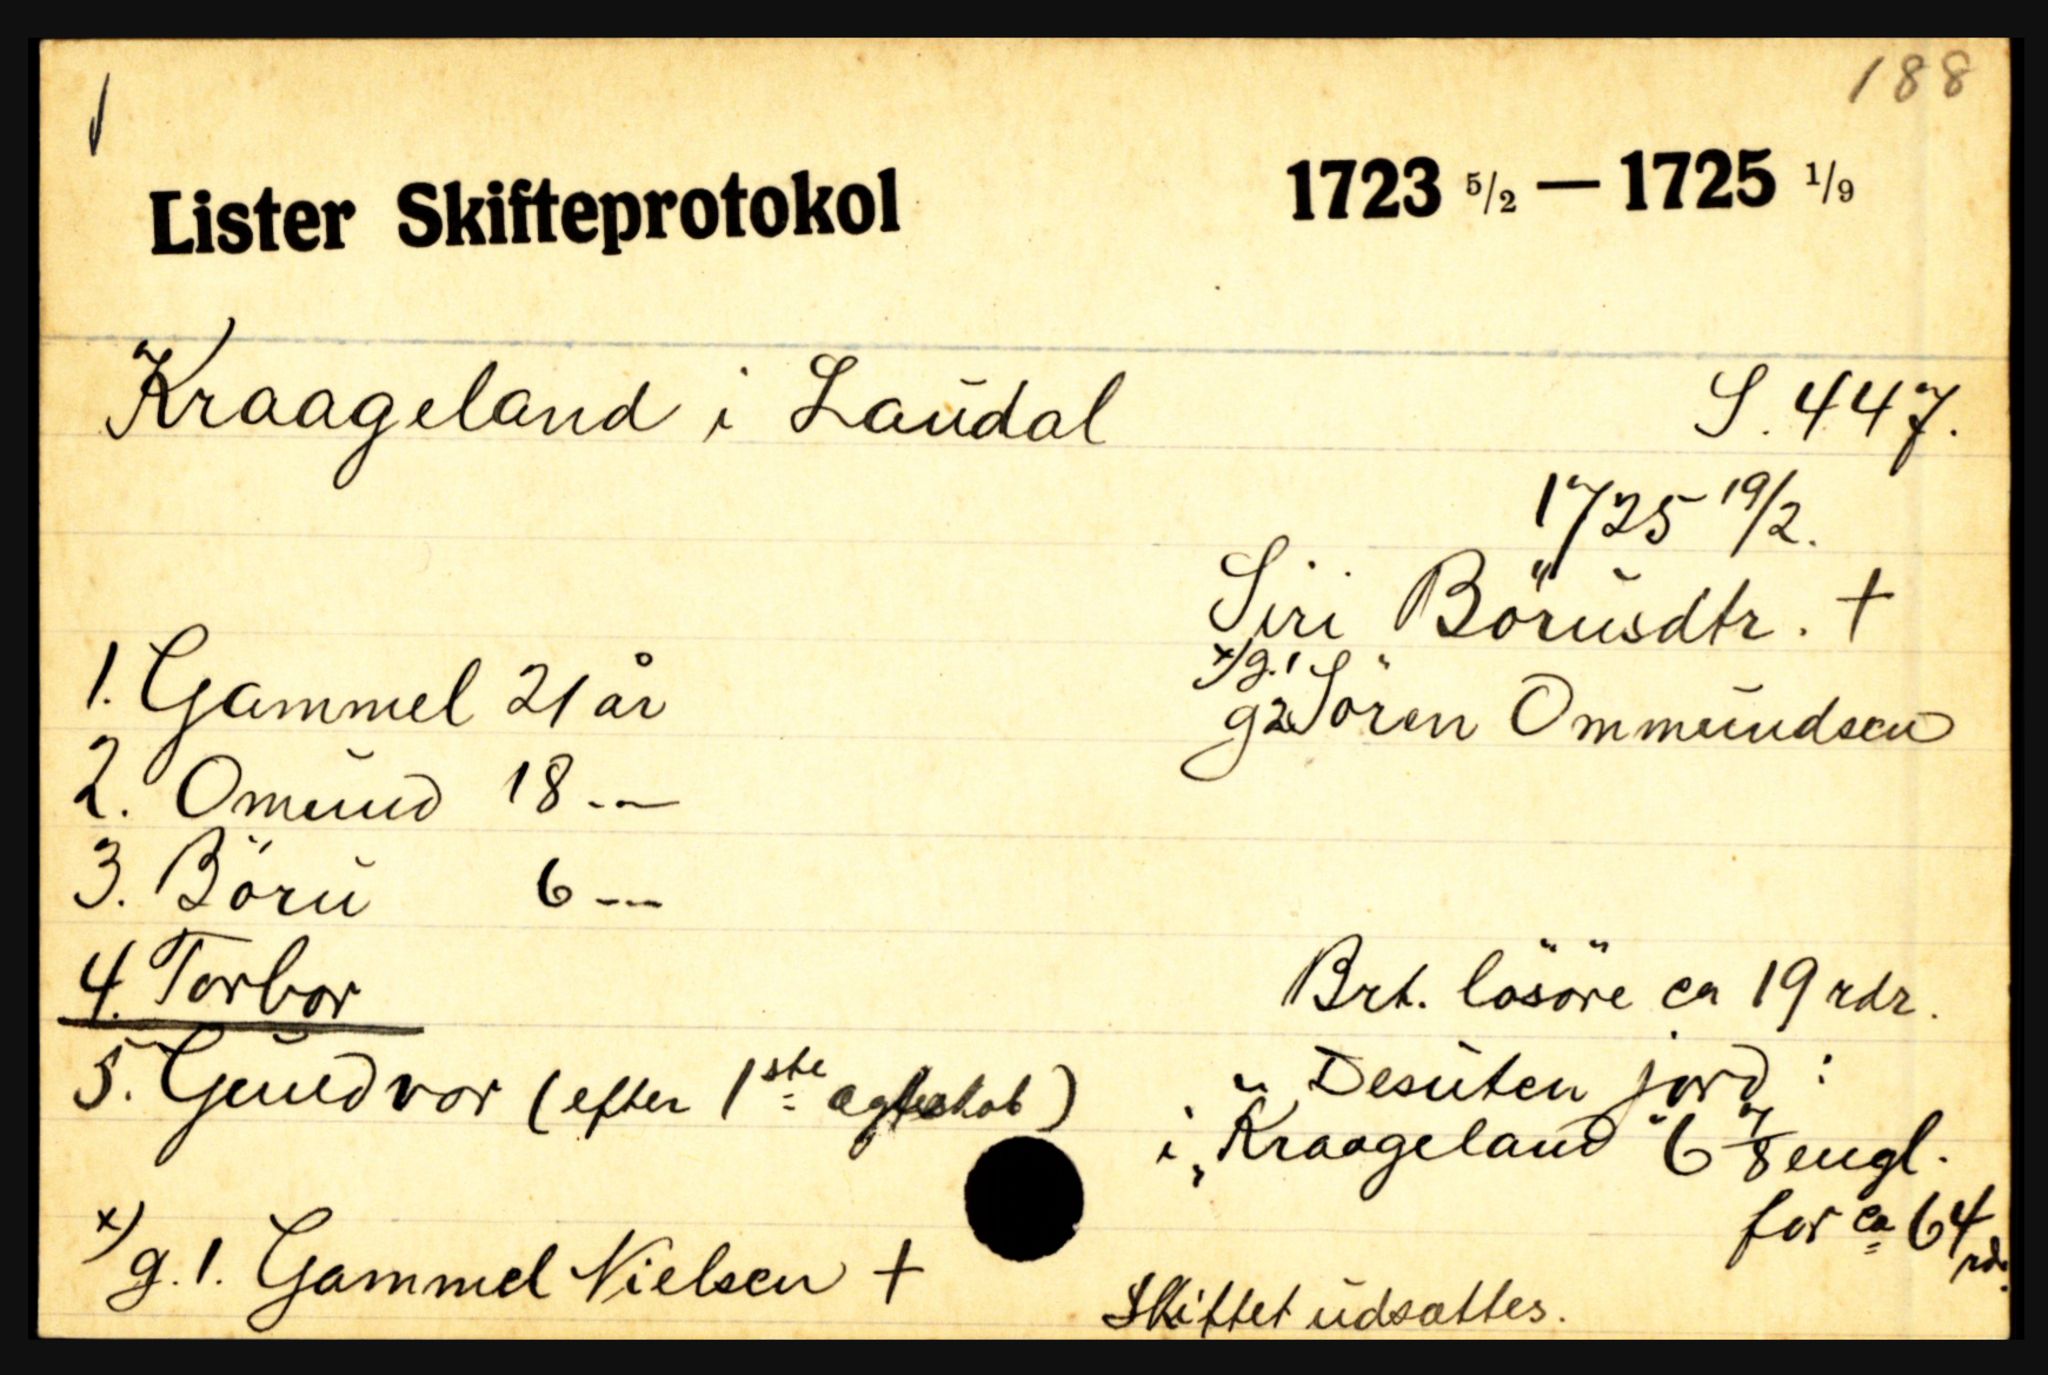 188
Lister Skifteprotokol 1723 5/2 — 1725 1/9
Kraageland i Laudal S. 447.
1725 19/2.
Siri Börusdtr. +
x) g. 1
g 2 Sören Ommundsen
1. Gammel 21 år
2. Omund 18 --
3. Böru 6 --
4. Torbor
5. Gundvor (efter 1ste ægteskab)
x) g. 1. Gammel Nielsen +
Brt. lösöre ca 19 rdr.
" Desuten jord :
i „Kraageland" 6 7/8 engl.
for ca 64 rdr.
Skiftet udsættes.